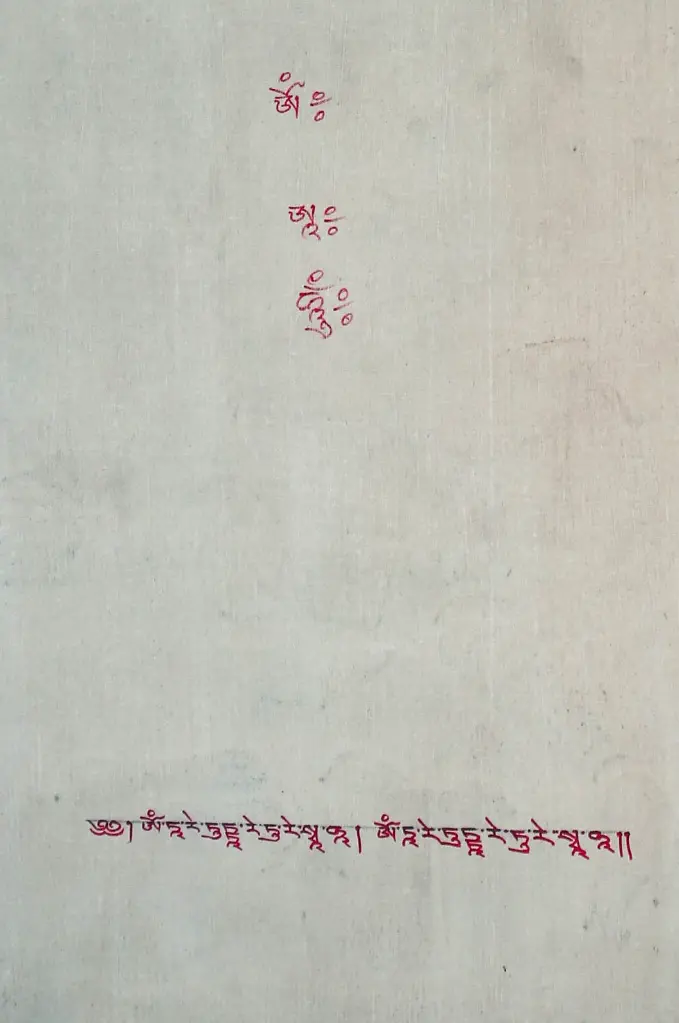 ཨོཾ༔
ཨཱ༔
ཧཱུྃ༔
༄༅། ཨོཾ་ཏཱ་རེ་ཏུཏྟཱ་རེ་ཏུ་རེ་སྭཱ་ཧཱ། ཨོཾ་ཏཱ་རེ་ཏུཏྟཱ་རེ་ཏུ་རེ་སྭཱ་ཧཱ།།